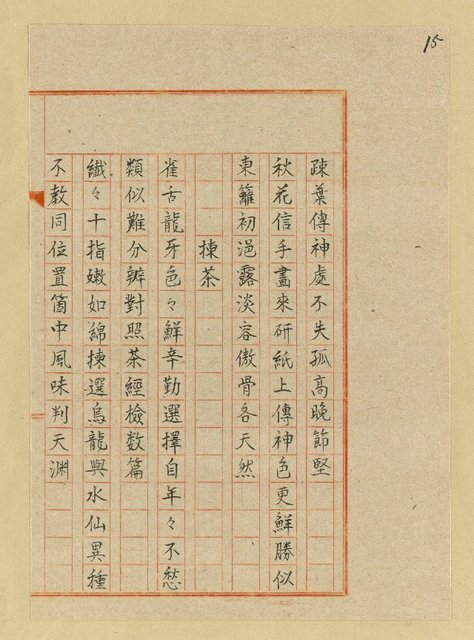 15
疎葉傳神處不失孤高晚節堅
秋花信手畫來研紙上傳神色更鮮勝似
東籬初浥露淡容傲骨各天然
揀茶
雀舌龍牙色々鮮辛勤選擇自年々不愁
類似難分辨對照茶經檢数篇
纖々十指嫩如綿揀選烏龍與水仙異種
不教同位置箇中風味判天淵